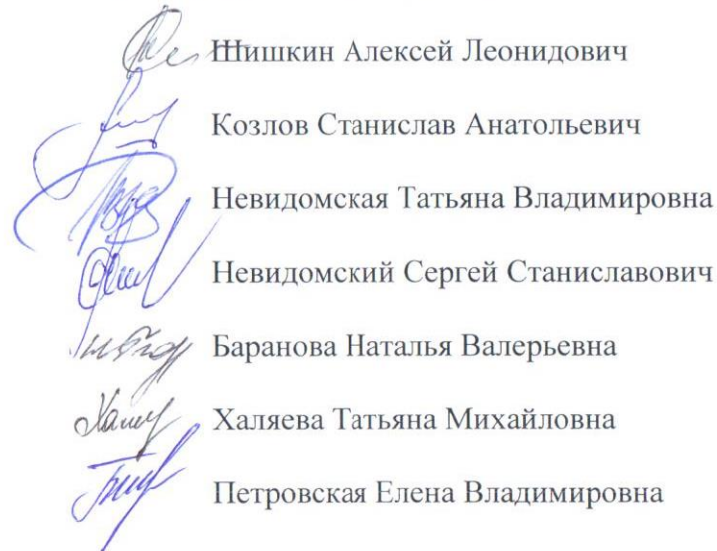 Шишкин Алексей Леонидович
Козлов Станислав Анатольевич
Невидомская Татьяна Владимировна
Невидомский Сергей Станиславович
Баранова Наталья Валерьевна
Халяева Татьяна Михайловна
Петровская Елена Владимировна